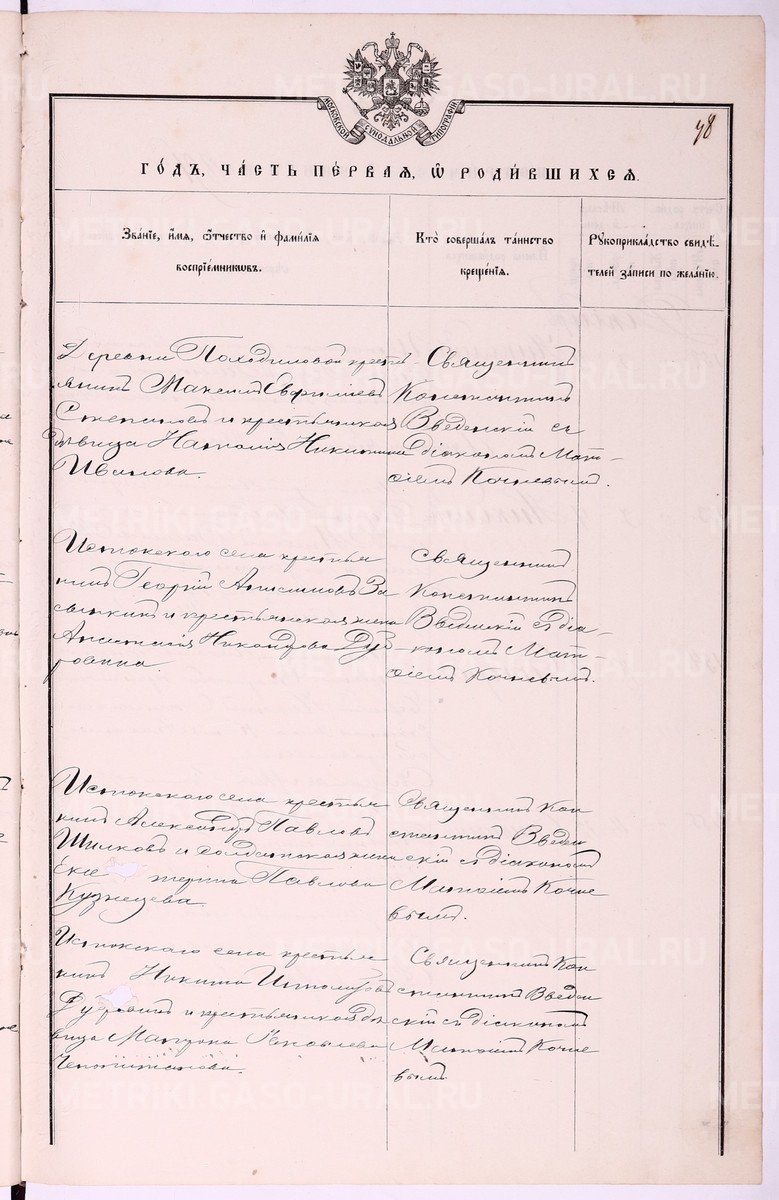 METRIKI.GASO-URAL.RU
МОСКОВСКОЙ СѴНОДАЛЬНОЙ ТИПОГРАФІИ
48
ГОДЪ, ЧАСТЬ ПЕРВАЯ, Ѡ РОДИВШИХСЯ.
Званіе, имя, отчество и фамилія
воспріемниковъ.
Кто совершалъ таинство
крещенія.
Рукоприкладство свидѣ-
телей записи по желанію.
Деревни Походиловой кресть
янинъ Максимъ
и крестьянская
дѣвица Наталія Никитина
Ивилова.
Священникъ
Константинъ
Введенскій съ
діакономъ Мат-
ѳіемъ Кочневымъ.
Истокскаго села крестья
нинъ Георгій За
и крестьянская жена
Анастасія Никандрова Дуб
ровина.
Священникъ
Константинъ
Введенскій съ діа-
кономъ Мат-
ѳіемъ Кочневымъ.
Истокскаго села крестья
нинъ Александръ Павловъ
Шилковъ и солдатская жена
Ека терина Павлова
Кузнецева.
Священникъ Кон
стантинъ Введен
скій съ діакономъ
Матѳіемъ Кочне
вымъ.
Истокскаго села крестья
нинъ Никита
и крестьянская дѣ
вица Матрона Яковлева
Священникъ Кон
стантинъ Введен
скій съ діакономъ
Матѳіемъ Кочне
вымъ